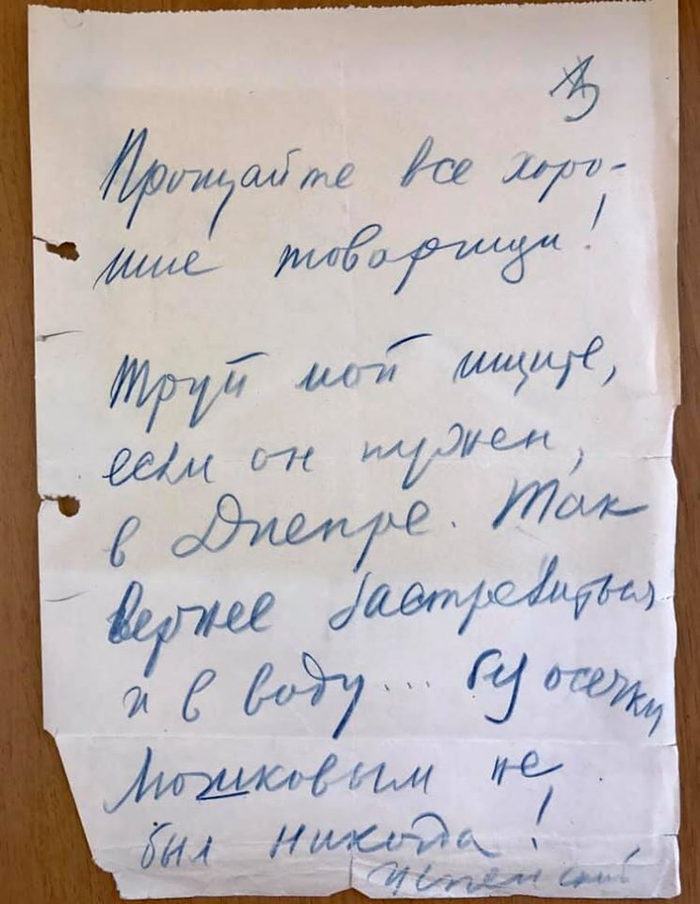 Прощайте все хоро-
шие товарищи!
Труп мой ищите,
если он нужен,
в Днепре. Так
вернее застрелиться
и в воду... без осечки
Люшковым не
был никогда!
Успенский